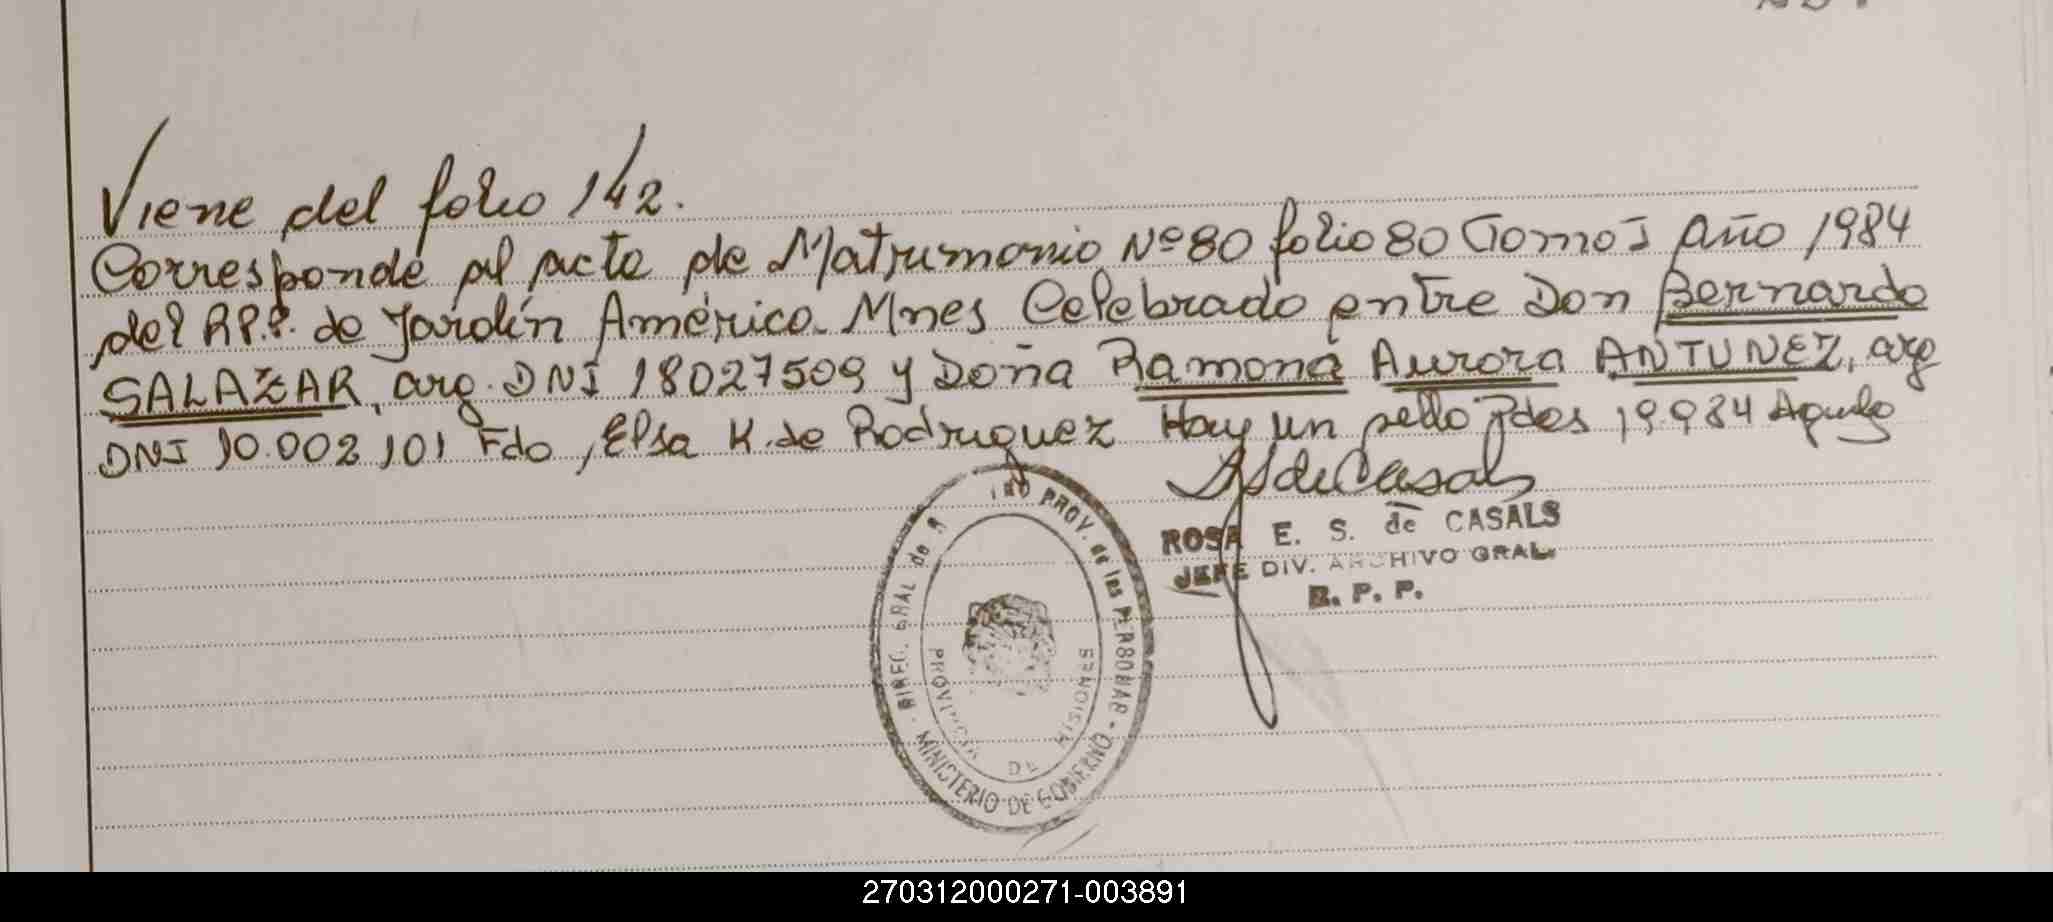 Viene del folio 142.
Corresponde al acta de Matrimonio Nº 80 folio 80 Tomo I Año 1984
del R.P.P. de Jardín América Mnes Celebrado entre Don Bernardo
SALAZAR, arg. DNI 18027509 y Doña Ramona Aurora ANTUNEZ, arg
DNI 10.002.101 Fdo, Elsa K. de Rodriguez Hay un sello Pdas
ROSA E. S. de CASALS
JEFE DIV. ARCHIVO GRAL.
R. P. P.
DIREC. GRAL de PROV. de las PERSONAS - MINISTERIO DE GOBIERNO
PROVINCIA DE MISIONES
270312000271-003891